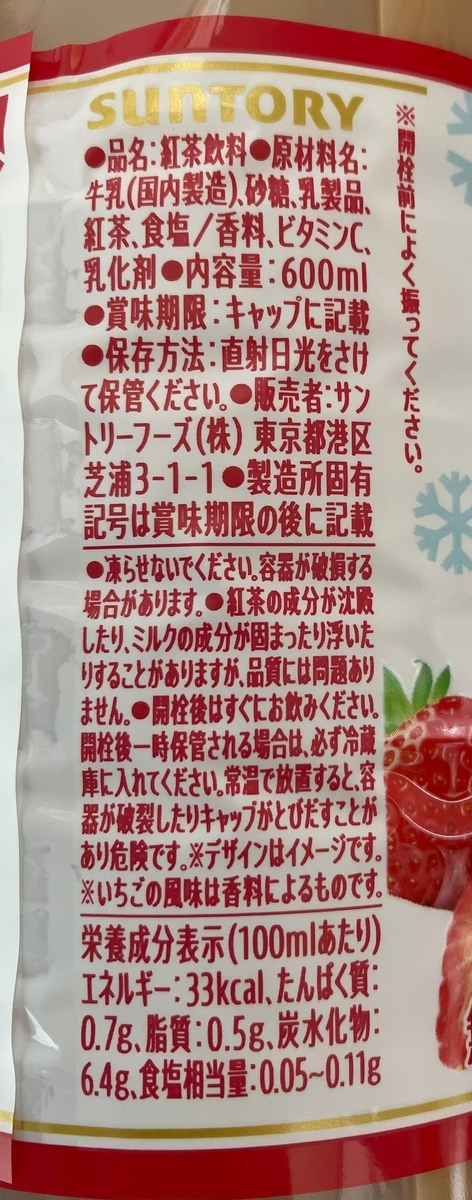 SUNTORY
●品名:紅茶飲料●原材料名:
牛乳(国内製造)、砂糖、乳製品、
紅茶、食塩/香料、ビタミンC、
乳化剤●内容量:600ml
●賞味期限:キャップに記載
●保存方法:直射日光をさけ
て保管ください。●販売者:サン
トリーフーズ(株) 東京都港区
芝浦3-1-1●製造所固有
記号は賞味期限の後に記載
●凍らせないでください。容器が破損する
場合があります。●紅茶の成分が沈殿
したり、ミルクの成分が固まったり浮いた
りすることがありますが、品質には問題あり
ません。●開栓後はすぐにお飲みください。
開栓後一時保管される場合は、必ず冷蔵
庫に入れてください。常温で放置すると、容
器が破裂したりキャップがとびだすことが
あり危険です。※デザインはイメージです。
※いちごの風味は香料によるものです。
栄養成分表示(100mlあたり)
エネルギー:33kcal、たんぱく質:
0.7g、脂質:0.5g、炭水化物:
6.4g、食塩相当量:0.05~0.11g
※開栓前によく振ってください。